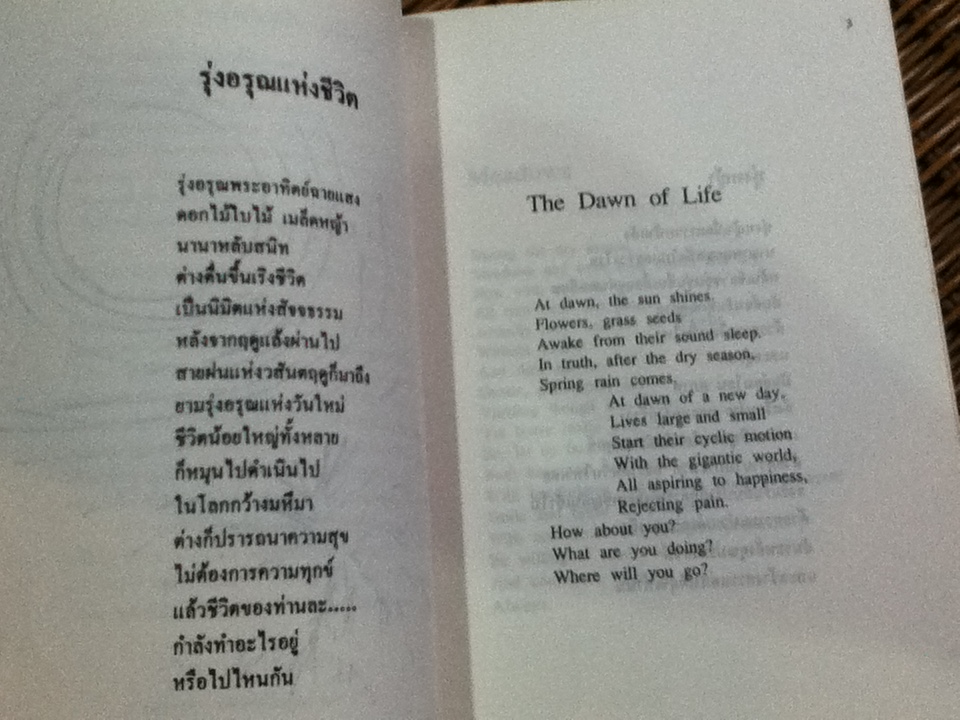 รุ่งอรุณแห่งชีวิต
รุ่งอรุณพระอาทิตย์ฉายแสง
ดอกไม้ใบไม้ เมล็ดหญ้า
นานาหลับสนิท
ต่างตื่นขึ้นเริงชีวิต
เป็นนิมิตแห่งสัจจธรรม
หลังจากฤดูแล้งผ่านไป
สายฝนแห่งวสันตฤดูก็มาถึง
ยามรุ่งอรุณแห่งวันใหม่
ชีวิตน้อยใหญ่ทั้งหลาย
ก็หมุนไปดำเนินไป
ในโลกกว้างมหึมา
ต่างก็ปรารถนาความสุข
ไม่ต้องการความทุกข์
แล้วชีวิตของท่านละ.....
กำลังทำอะไรอยู่
หรือไปไหนกัน
3
The Dawn of Life
At dawn, the sun shines
Flowers, grass seeds
Awake from their sound sleep.
In truth, after the dry season,
Spring rain comes,
At dawn of a new day,
Lives large and small
Start their cyclic motion
With the gigantic world,
All aspiring to happiness,
Rejecting pain.
How about you?
What are you doing?
Where will you go?